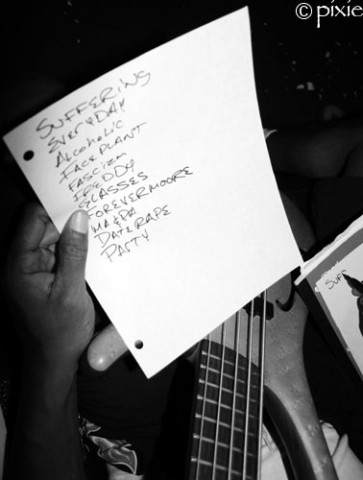 © pixie
SUFFERiNG
EVERYDAY
ALCOHOLiC
FACEPLANT
FASCiSM
FREDDY
GLASSES
FOREVERMOORE
MA & PA
DATE RAPE
PARTY
SUFF